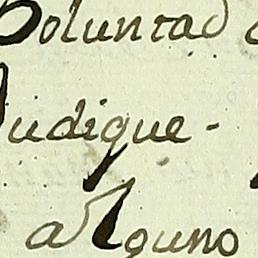 Voluntad
judique-
alguno